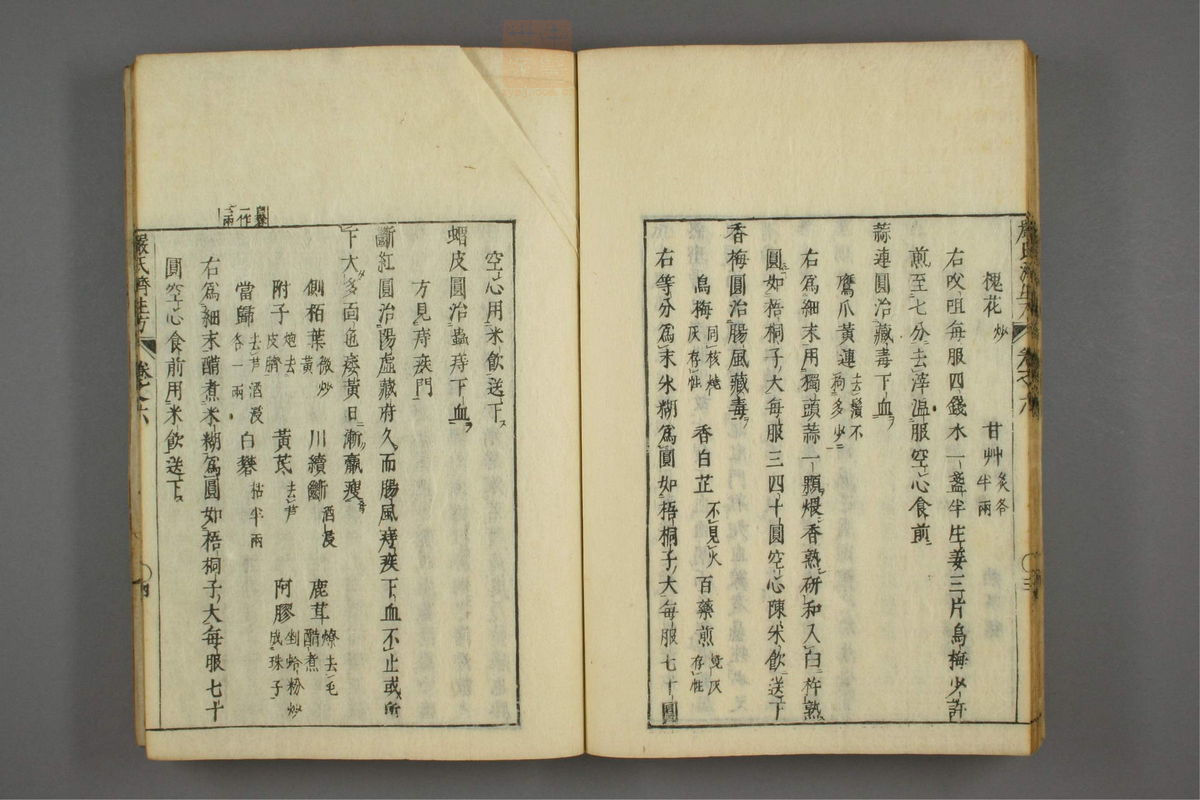 槐花炒 甘艸炙各半兩
右㕮咀每服四錢水一盞半生姜三片烏梅少許
煎至七分去滓温服空心食前
蒜連圓治藏毒下血
鷹爪黃連去鬚不拘多少
右爲細末用獨頭蒜一顆煨香熟研和入臼杵熟
圓如梧桐子大每服三四十圓空心陳米飲送下
香梅圓治腸風藏毒
烏梅同核燒灰存性 香白芷不見火 百藥煎燒灰存性
右等分爲末米糊爲圓如梧桐子大每服七十圓
空心用米飲送下
蝟皮圓治蟲痔下血
方見痔疾門
斷紅圓治腸虛藏府久而腸風痔疾下血不止或所
下太多面色痿黃日漸羸瘦
側栢葉微炒黃 川續斷酒浸 鹿茸燎去毛醋煮
附子炮去皮臍 黃芪去芦 阿膠剉蛤粉炒成珠子
當歸去芦酒浸各一兩 白礬枯半兩
白礬一作一兩
右爲細末醋煮米糊爲圓如梧桐子大每服七十
圓空心食前用米飲送下
嚴氏濟生方 卷之六 〇四